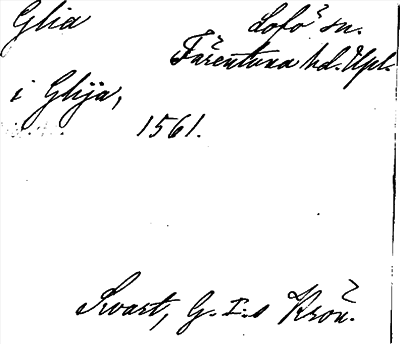 Glia
Lofö sn.
Färentuna hd. Upl.
i Glija,
1561.
Svart, G. I:s Krön.